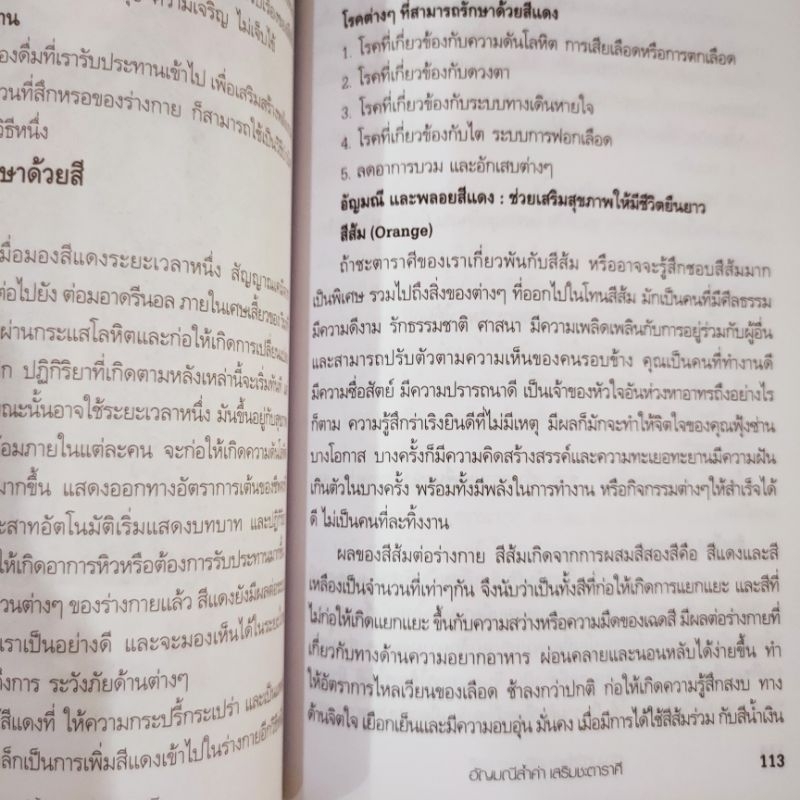 ความเจริญ ไม่เจ็บไข้
องดื่มที่เรารับประทานเข้าไป เพื่อเสริมสร้าง
วนที่สึกหรอของร่างกาย ก็สามารถใช้เป็น
วิธีหนึ่ง
ษาด้วยสี
มื่อมองสีแดงระยะเวลาหนึ่ง สัญญาณ
ต่อไปยัง ต่อมอาดรีนอล ภายในเศษเสี้ยว
ผ่านกระแสโลหิตและก่อให้เกิดการเปลี่ยน
ก ปฏิกิริยาที่เกิดตามหลังเหล่านี้จะเริ่มทันที
ณะนั้นอาจใช้ระยะเวลาหนึ่ง มันขึ้นอยู่กับ
ร้อมภายในแต่ละคน จะก่อให้เกิดความดัน
มากขึ้น แสดงออกทางอัตราการเต้นของ
ะสาทอัตโนมัติเริ่มแสดงบทบาท และ
ให้เกิดอาการหิวหรือต้องการรับประทาน
วนต่างๆ ของร่างกายแล้ว สีแดงยังมีผลต่อ
เราเป็นอย่างดี และจะมองเห็นได้ใน
งการ ระวังภัยด้านต่างๆ
สีแดงที่ ให้ความกระปรี้กระเปร่า และเป็น
ล็กเป็นการเพิ่มสีแดงเข้าไปในร่างกายอีก
โรคต่างๆ ที่สามารถรักษาด้วยสีแดง
1. โรคที่เกี่ยวข้องกับความดันโลหิต การเสียเลือดหรือการตกเลือด
2. โรคที่เกี่ยวข้องกับดวงตา
3. โรคที่เกี่ยวข้องกับระบบทางเดินหายใจ
4. โรคที่เกี่ยวข้องกับไต ระบบการฟอกเลือด
5. ลดอาการบวม และอักเสบต่างๆ
อัญมณี และพลอยสีแดง : ช่วยเสริมสุขภาพให้มีชีวิตยืนยาว
สีส้ม (Orange)
ถ้าชะตาราศีของเราเกี่ยวพันกับสีส้ม หรืออาจจะรู้สึกชอบสีส้มมาก
เป็นพิเศษ รวมไปถึงสิ่งของต่างๆ ที่ออกไปในโทนสีส้ม มักเป็นคนที่มีศีลธรรม
มีความดีงาม รักธรรมชาติ ศาสนา มีความเพลิดเพลินกับการอยู่ร่วมกับผู้อื่น
และสามารถปรับตัวตามความเห็นของคนรอบข้าง คุณเป็นคนที่ทำงานดี
มีความซื่อสัตย์ มีความปรารถนาดี เป็นเจ้าของหัวใจอันห่วงหาอาทรถึงอย่างไร
ก็ตาม ความรู้สึกร่าเริงยินดีที่ไม่มีเหตุ มีผลก็มักจะทำให้จิตใจของคุณฟุ้งซ่าน
บางโอกาส บางครั้งก็มีความคิดสร้างสรรค์และความทะเยอทะยานมีความฝัน
เกินตัวในบางครั้ง พร้อมทั้งมีพลังในการทำงาน หรือกิจกรรมต่างๆให้สำเร็จได้
ดี ไม่เป็นคนที่ละทิ้งงาน
ผลของสีส้มต่อร่างกาย สีส้มเกิดจากการผสมสีสองสีคือ สีแดงและสี
เหลืองเป็นจำนวนที่เท่าๆกัน จึงนับว่าเป็นทั้งสีที่ก่อให้เกิดการแยกแยะ และสีที่
ไม่ก่อให้เกิดแยกแยะ ขึ้นกับความสว่างหรือความมืดของเฉดสี มีผลต่อร่างกายที่
เกี่ยวกับทางด้านความอยากอาหาร ผ่อนคลายและนอนหลับได้ง่ายขึ้น ทำ
ให้อัตราการไหลเวียนของเลือด ช้าลงกว่าปกติ ก่อให้เกิดความรู้สึกสงบ ทาง
ด้านจิตใจ เยือกเย็นและมีความอบอุ่น มั่นคง เมื่อมีการได้ใช้สีส้มร่วม กับสีน้ำเงิน
อัญมณีล้ำค่า เสริมชะตาราศี
113